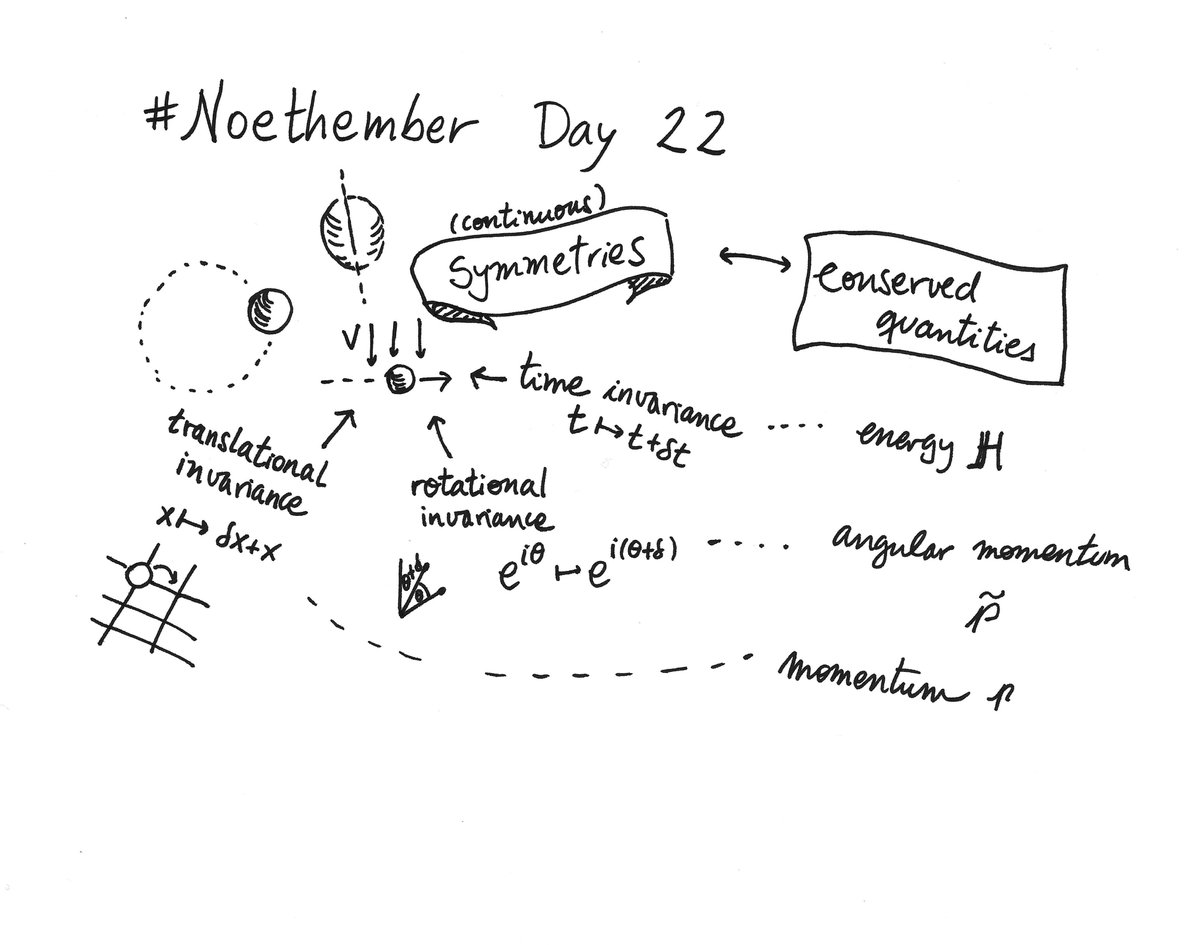 #Noethember Day 22
(continuous)
Symmetries
conserved
quantities
V
time invariance
t ↦ t+δt
energy ℍ
translational
invariance
x ↦ δx+x
rotational
invariance
e^{iθ} ↦ e^{i(θ+δ)}
θ+δ
θ
angular momentum
p̃
momentum p